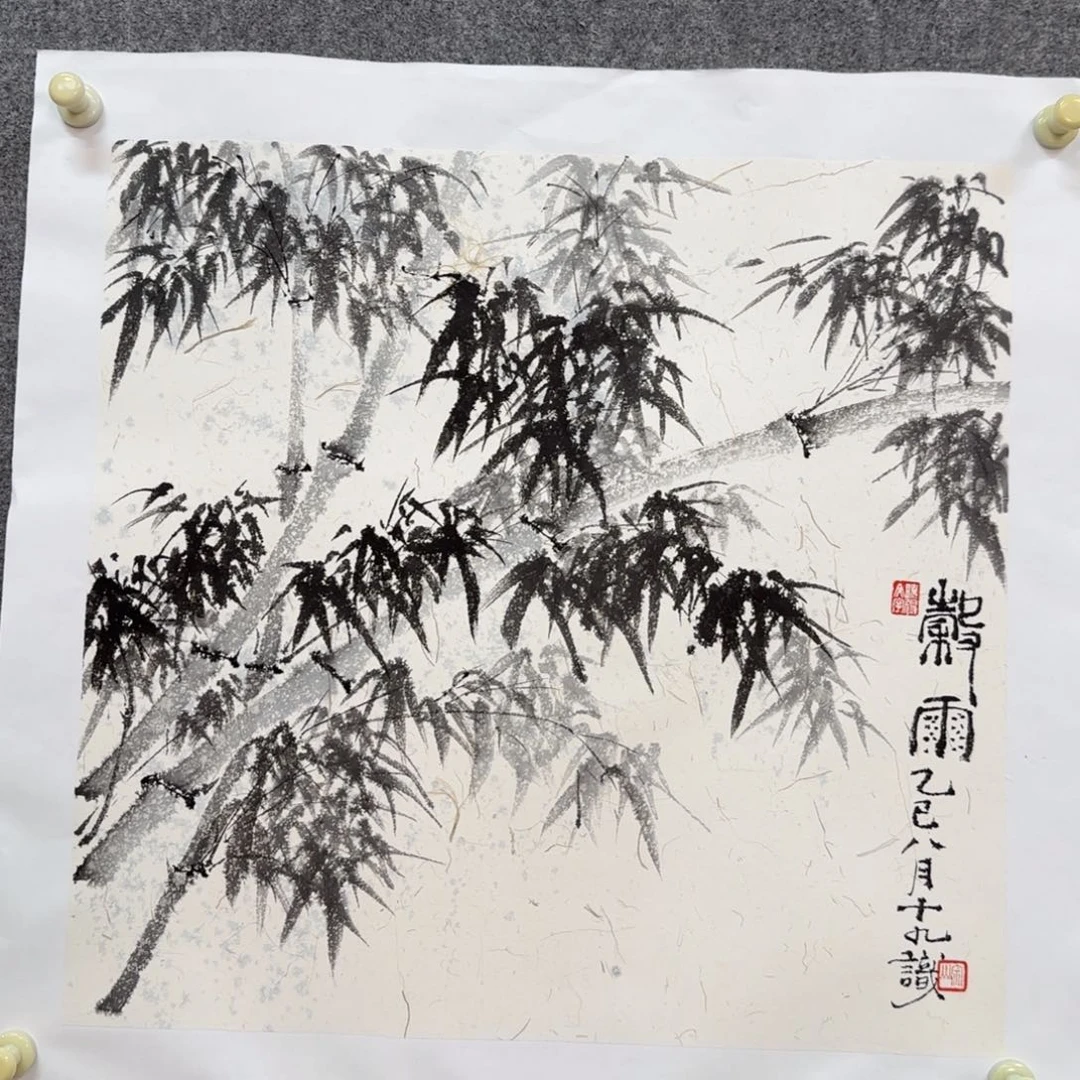 穀雨
乙巳八月十九識